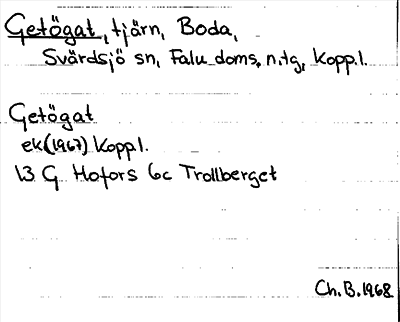 Getögat, tjärn, Boda,
Svärdsjö sn, Falu doms. n. tg, Kopp.l.
Getögat
ek(1967) Kopp.l.
13 G Hofors 6c Trollberget
Ch. B. 1968